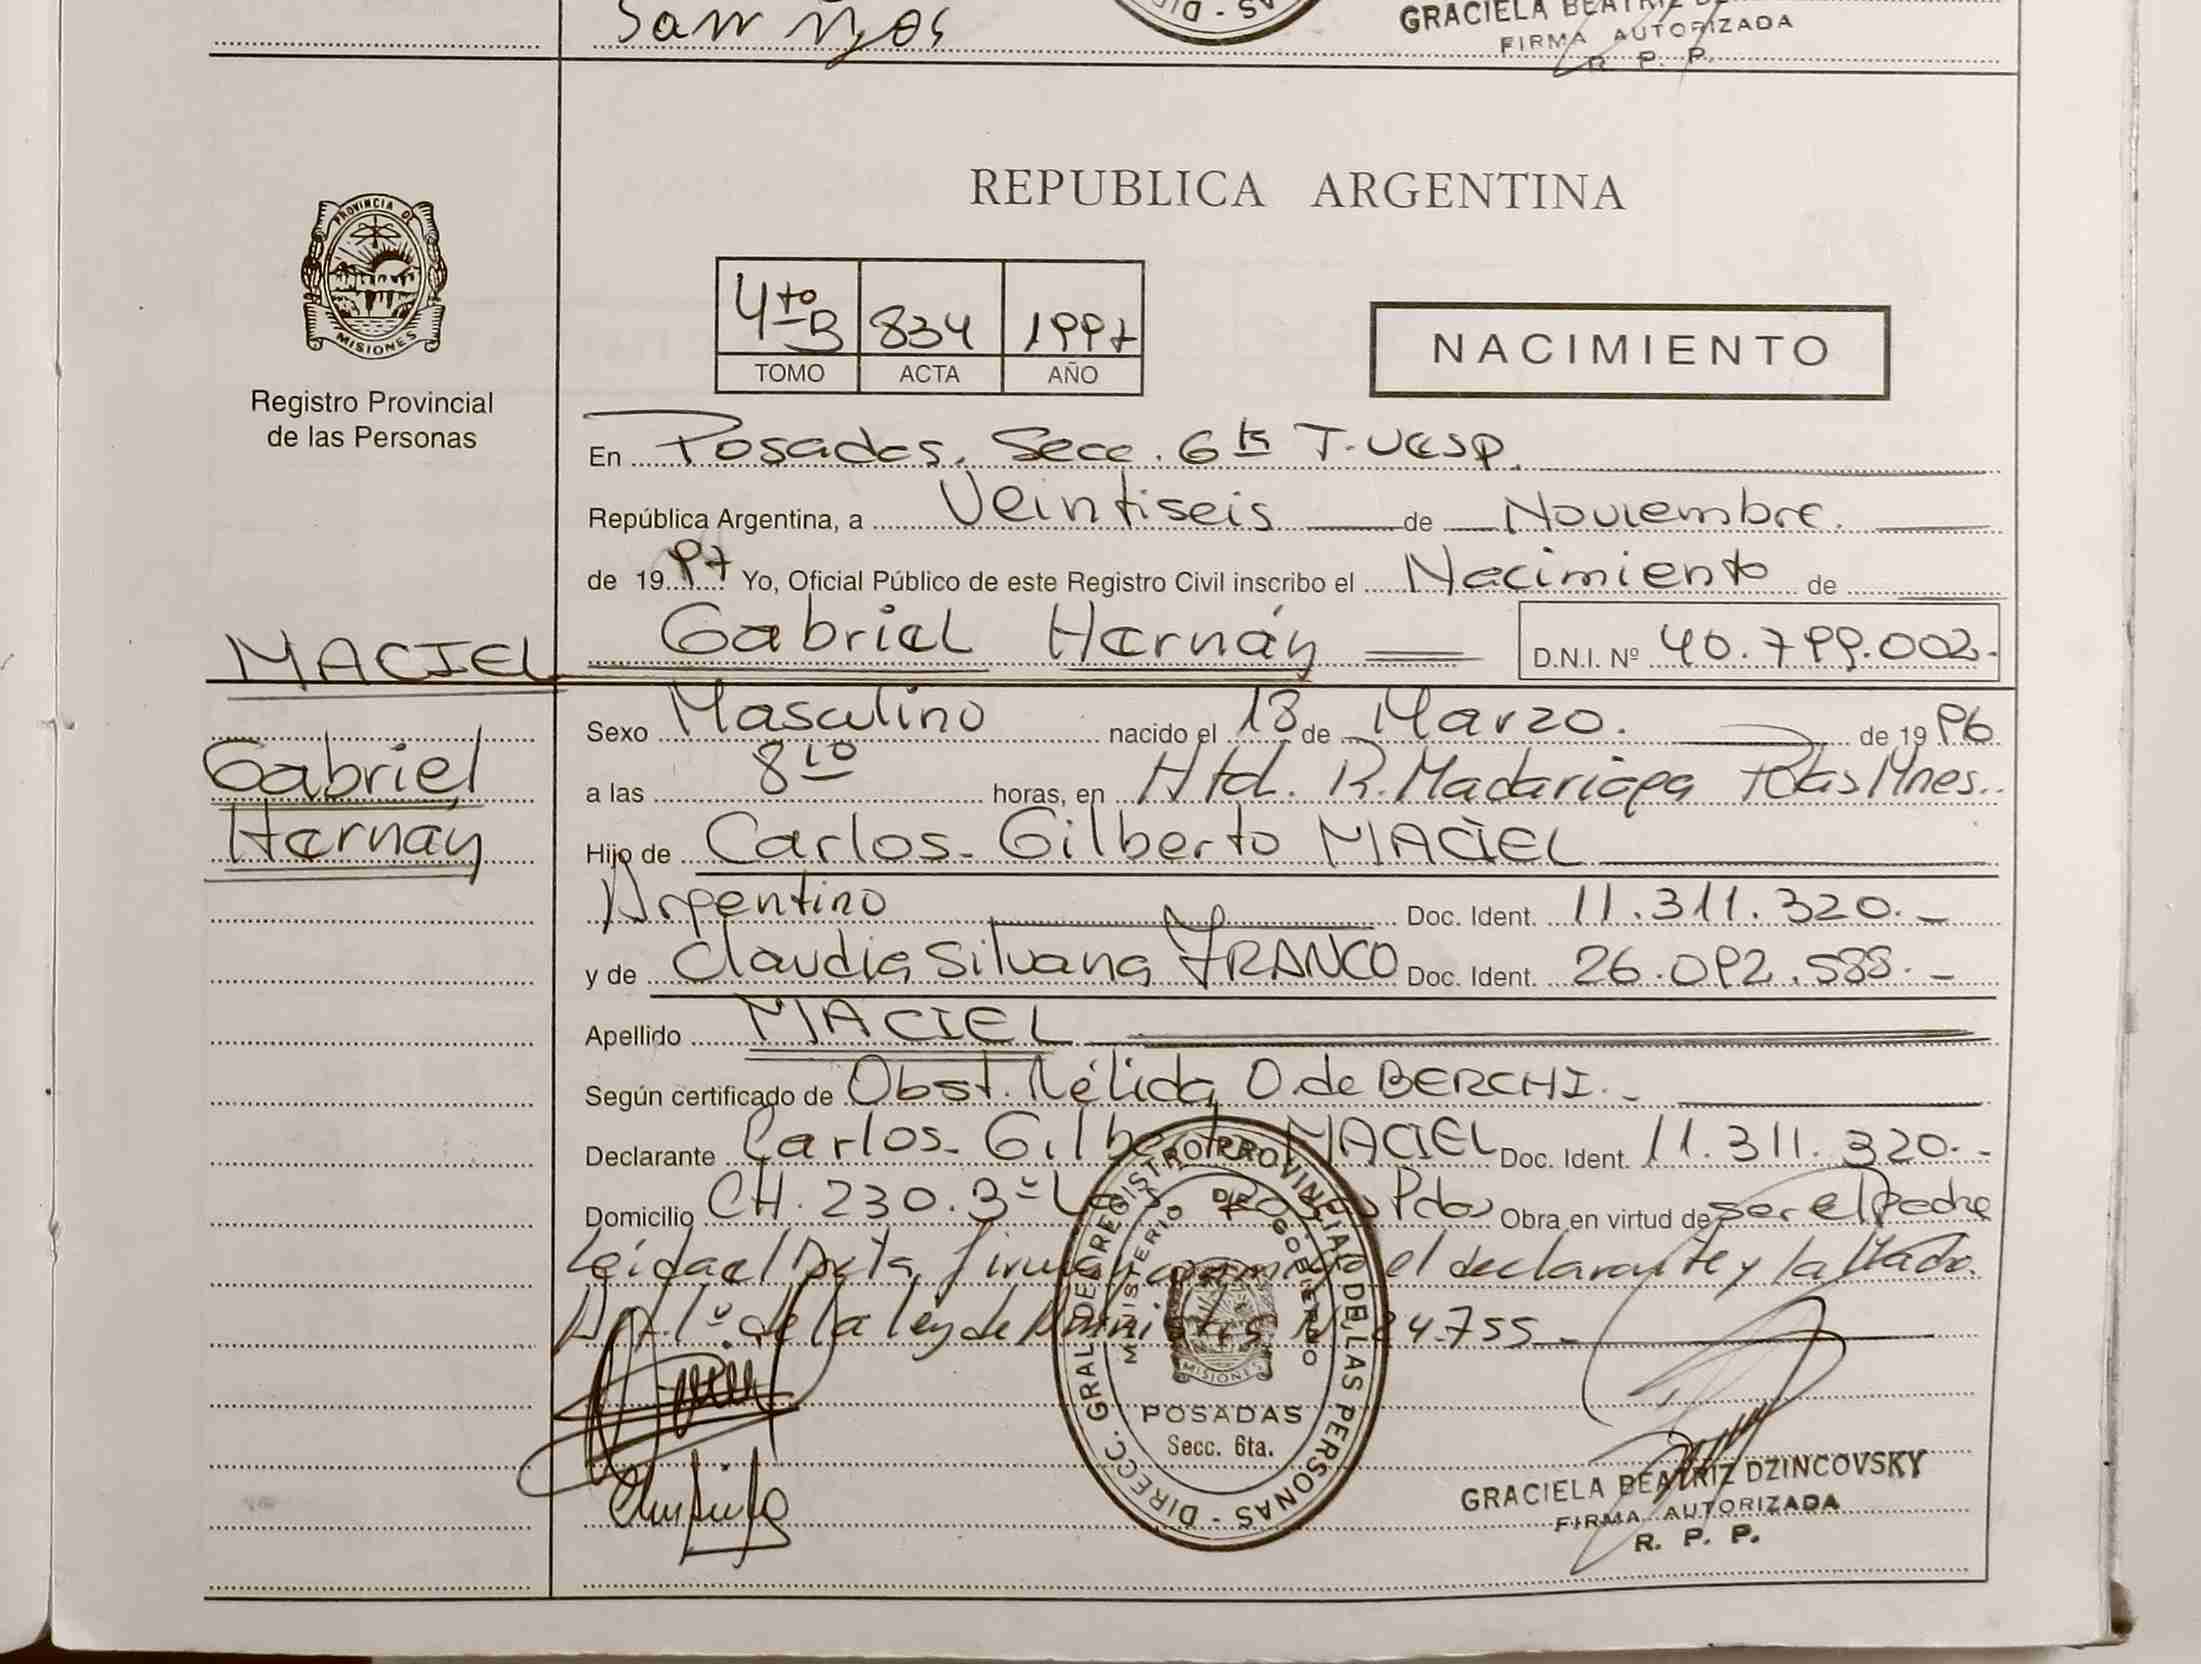 San
GRACIELA BEATRIZ
FIRMA AUTORIZADA
R. P. P.
REPUBLICA ARGENTINA
PROVINCIA DE
MISIONES
Registro Provincial
de las Personas
4to B 834 1997
TOMO ACTA AÑO
NACIMIENTO
En Posadas. Secc. 6ta T. VESP.
República Argentina, a Veintiseis de Noviembre.
de 1997 Yo, Oficial Público de este Registro Civil inscribo el Nacimiento de
MACIEL Gabriel Hernán D.N.I. Nº 40.799.002.
Gabriel
Hernán
Sexo Masculino nacido el 18 de Marzo. de 1996
a las 8 10 horas, en Htal. R. Madariaga Pdas Mnes.
Hijo de Carlos Gilberto MACIEL
Argentino Doc. Ident. 11.311.320.-
y de Claudia Silvana FRANCO Doc. Ident. 26.092.588.-
Apellido MACIEL
Según certificado de Obst. Nélida O. de BERCHI.-
Declarante Carlos Gilberto MACIEL Doc. Ident. 11.311.320.-
Domicilio CH. 230. Pdas Obra en virtud de ser el Padre
Leída el Acta, firman el declarante y la Madre.
Art. 1º de la ley de Nº 24.755-
DIRECC. GRAL DE REGISTRO PROVINCIAL DE LAS PERSONAS
MINISTERIO DE GOBIERNO
MISIONES
POSADAS
Secc. 6ta.
GRACIELA BEATRIZ DZINCOVSKY
FIRMA AUTORIZADA
R. P. P.